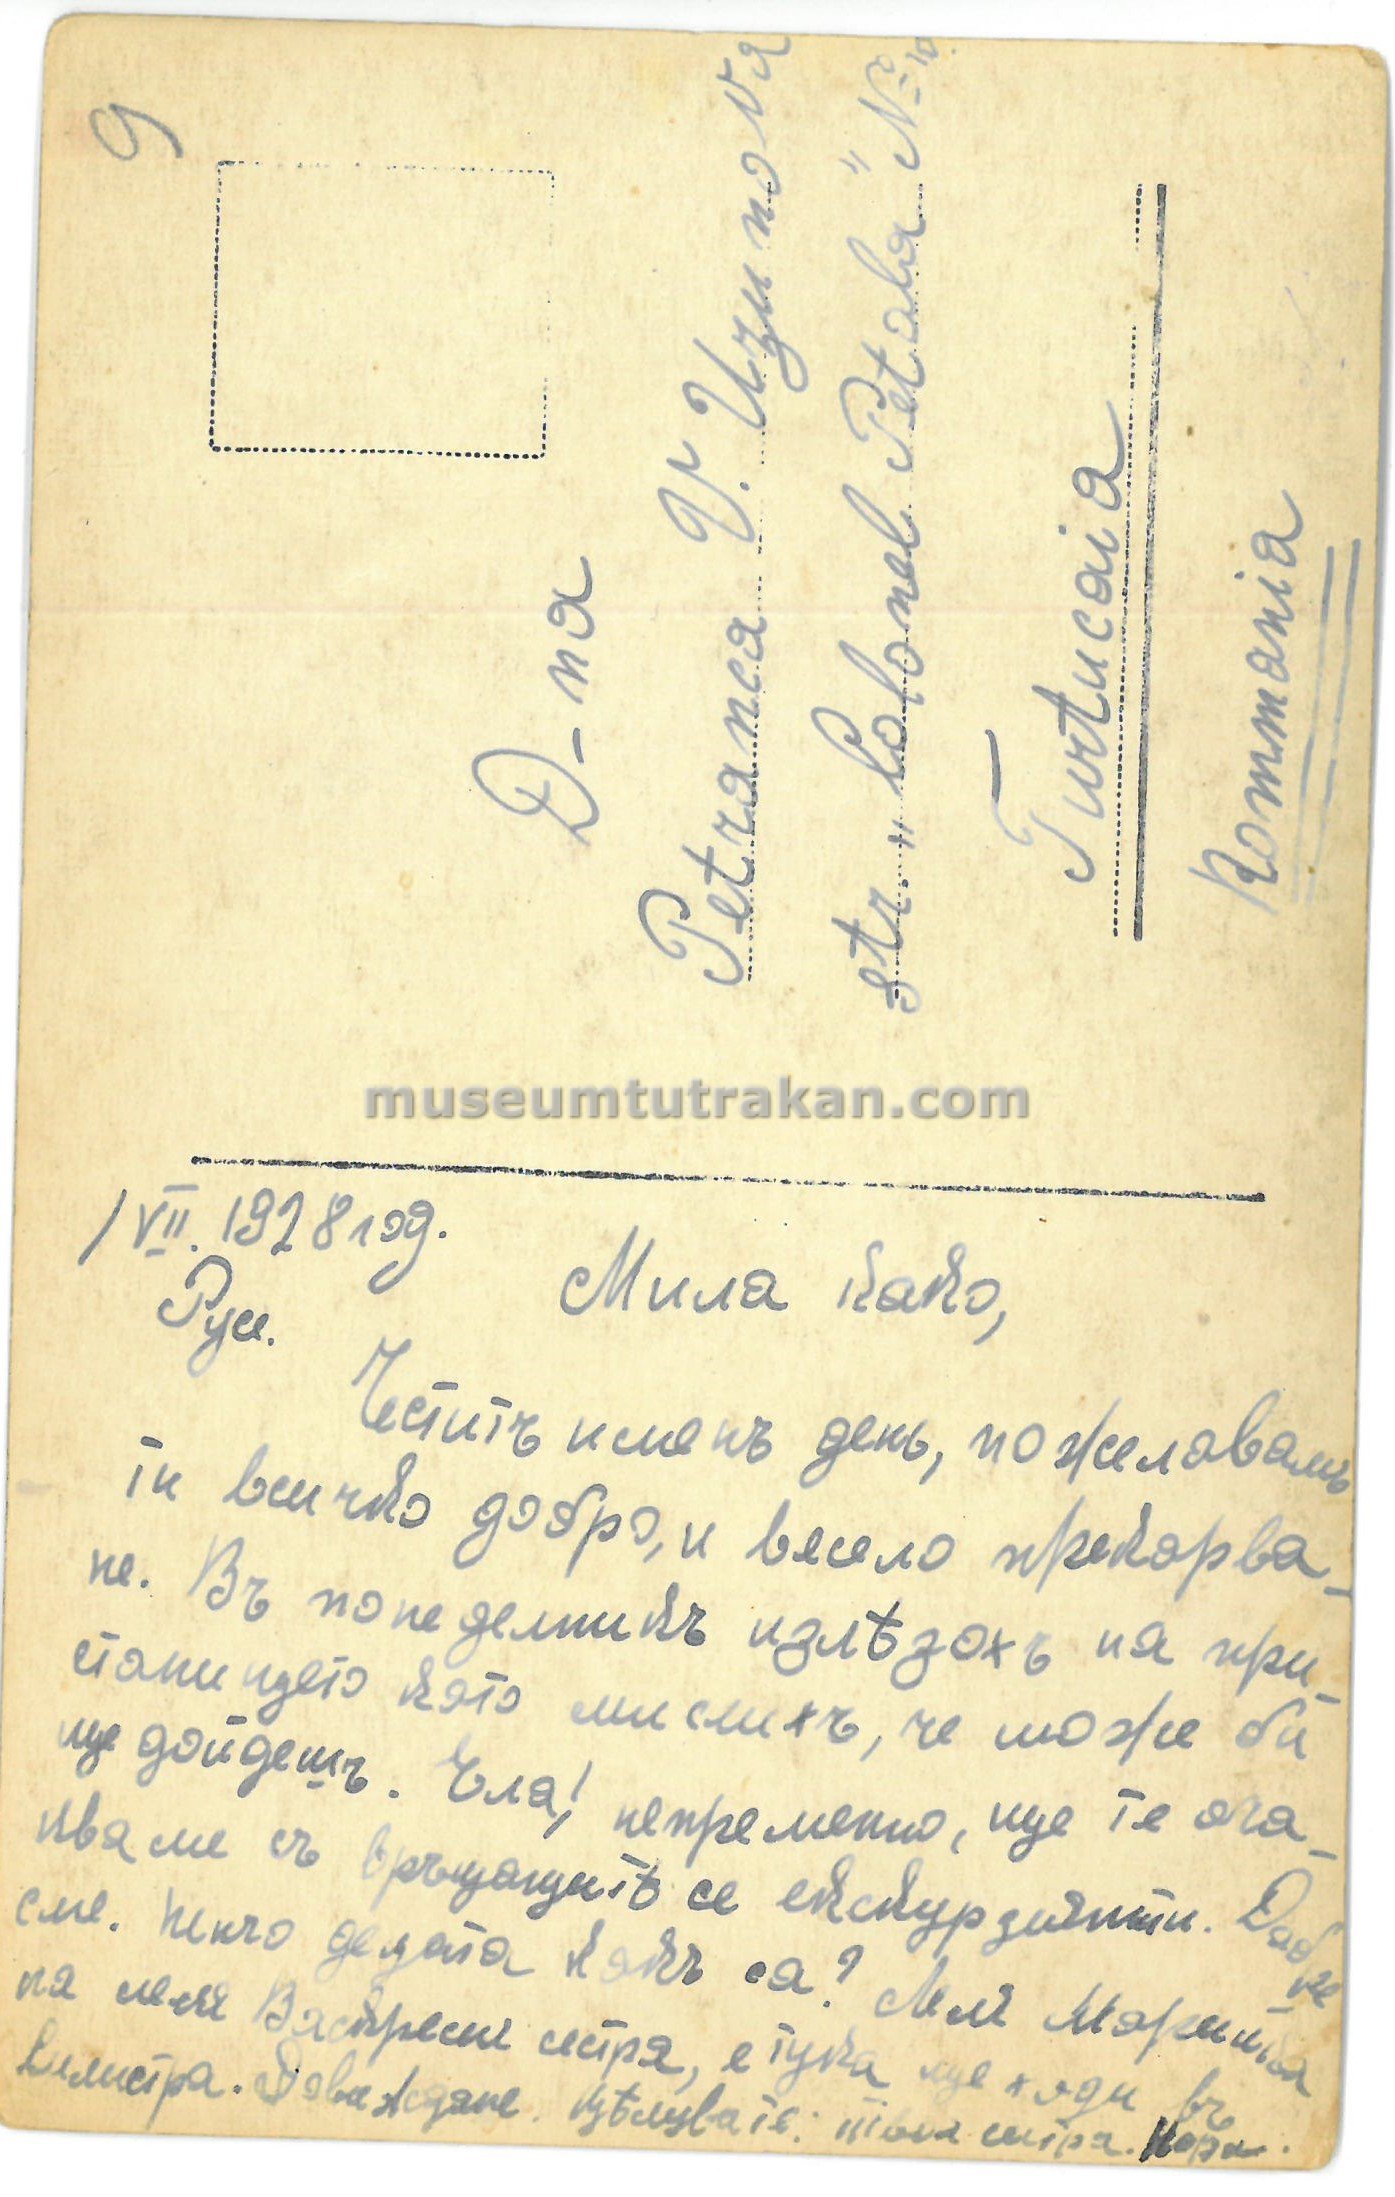 9
D-na
Petranca G. Uzunova
str. „Colonel Petală" № 10.
Turtucaia
Rommania
museumtutrakan.com
1 VII. 1928 год.
Русе.
Мила како,
Честитъ именъ день, пожелавамъ
ти всичко добро, и весело прекарва-
не. Въ понеделникъ излѣзохъ на при-
станището като мислихъ, че може би
ще дойдешъ. Ела! непременно, ще те оча-
кваме съ връщащитѣ се екскурзиянти. Добре
сме. Ненчо децата какъ са?
на сестра, е тука ще ходи въ
Силистра. Довиждане. Цѣлува те: твоя сестра.